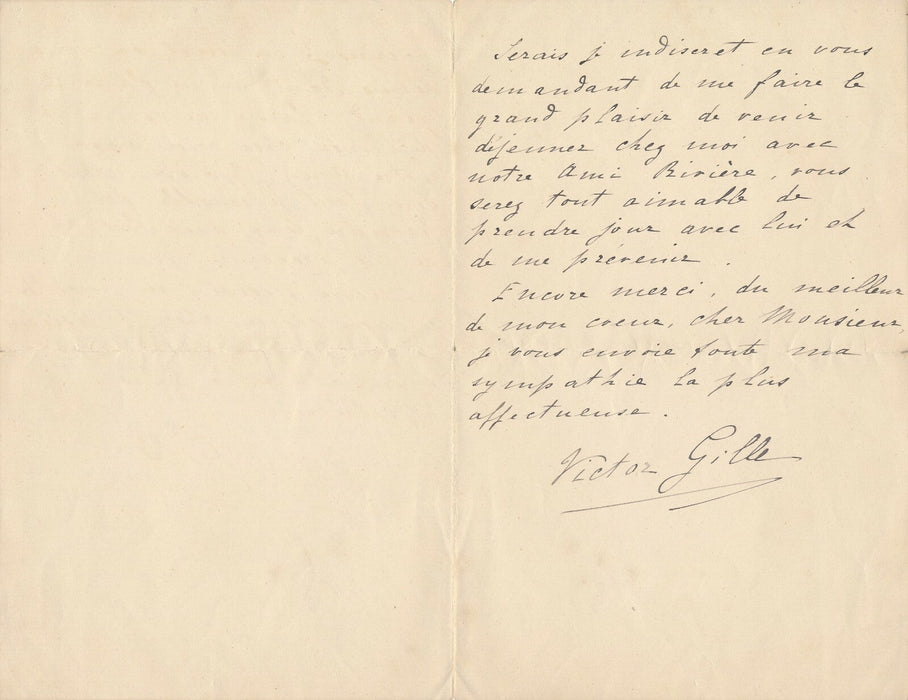 Serais je indiscret en vous
demandant de me faire le
grand plaisir de venir
déjeuner chez moi avec
notre Ami Rivière, vous
serez tout aimable de
prendre jour avec lui et
de me prévenir.
Encore merci, du meilleur
de mon coeur, cher Monsieur,
je vous envoie toute ma
sympathie la plus
affectueuse.
Victor Gille